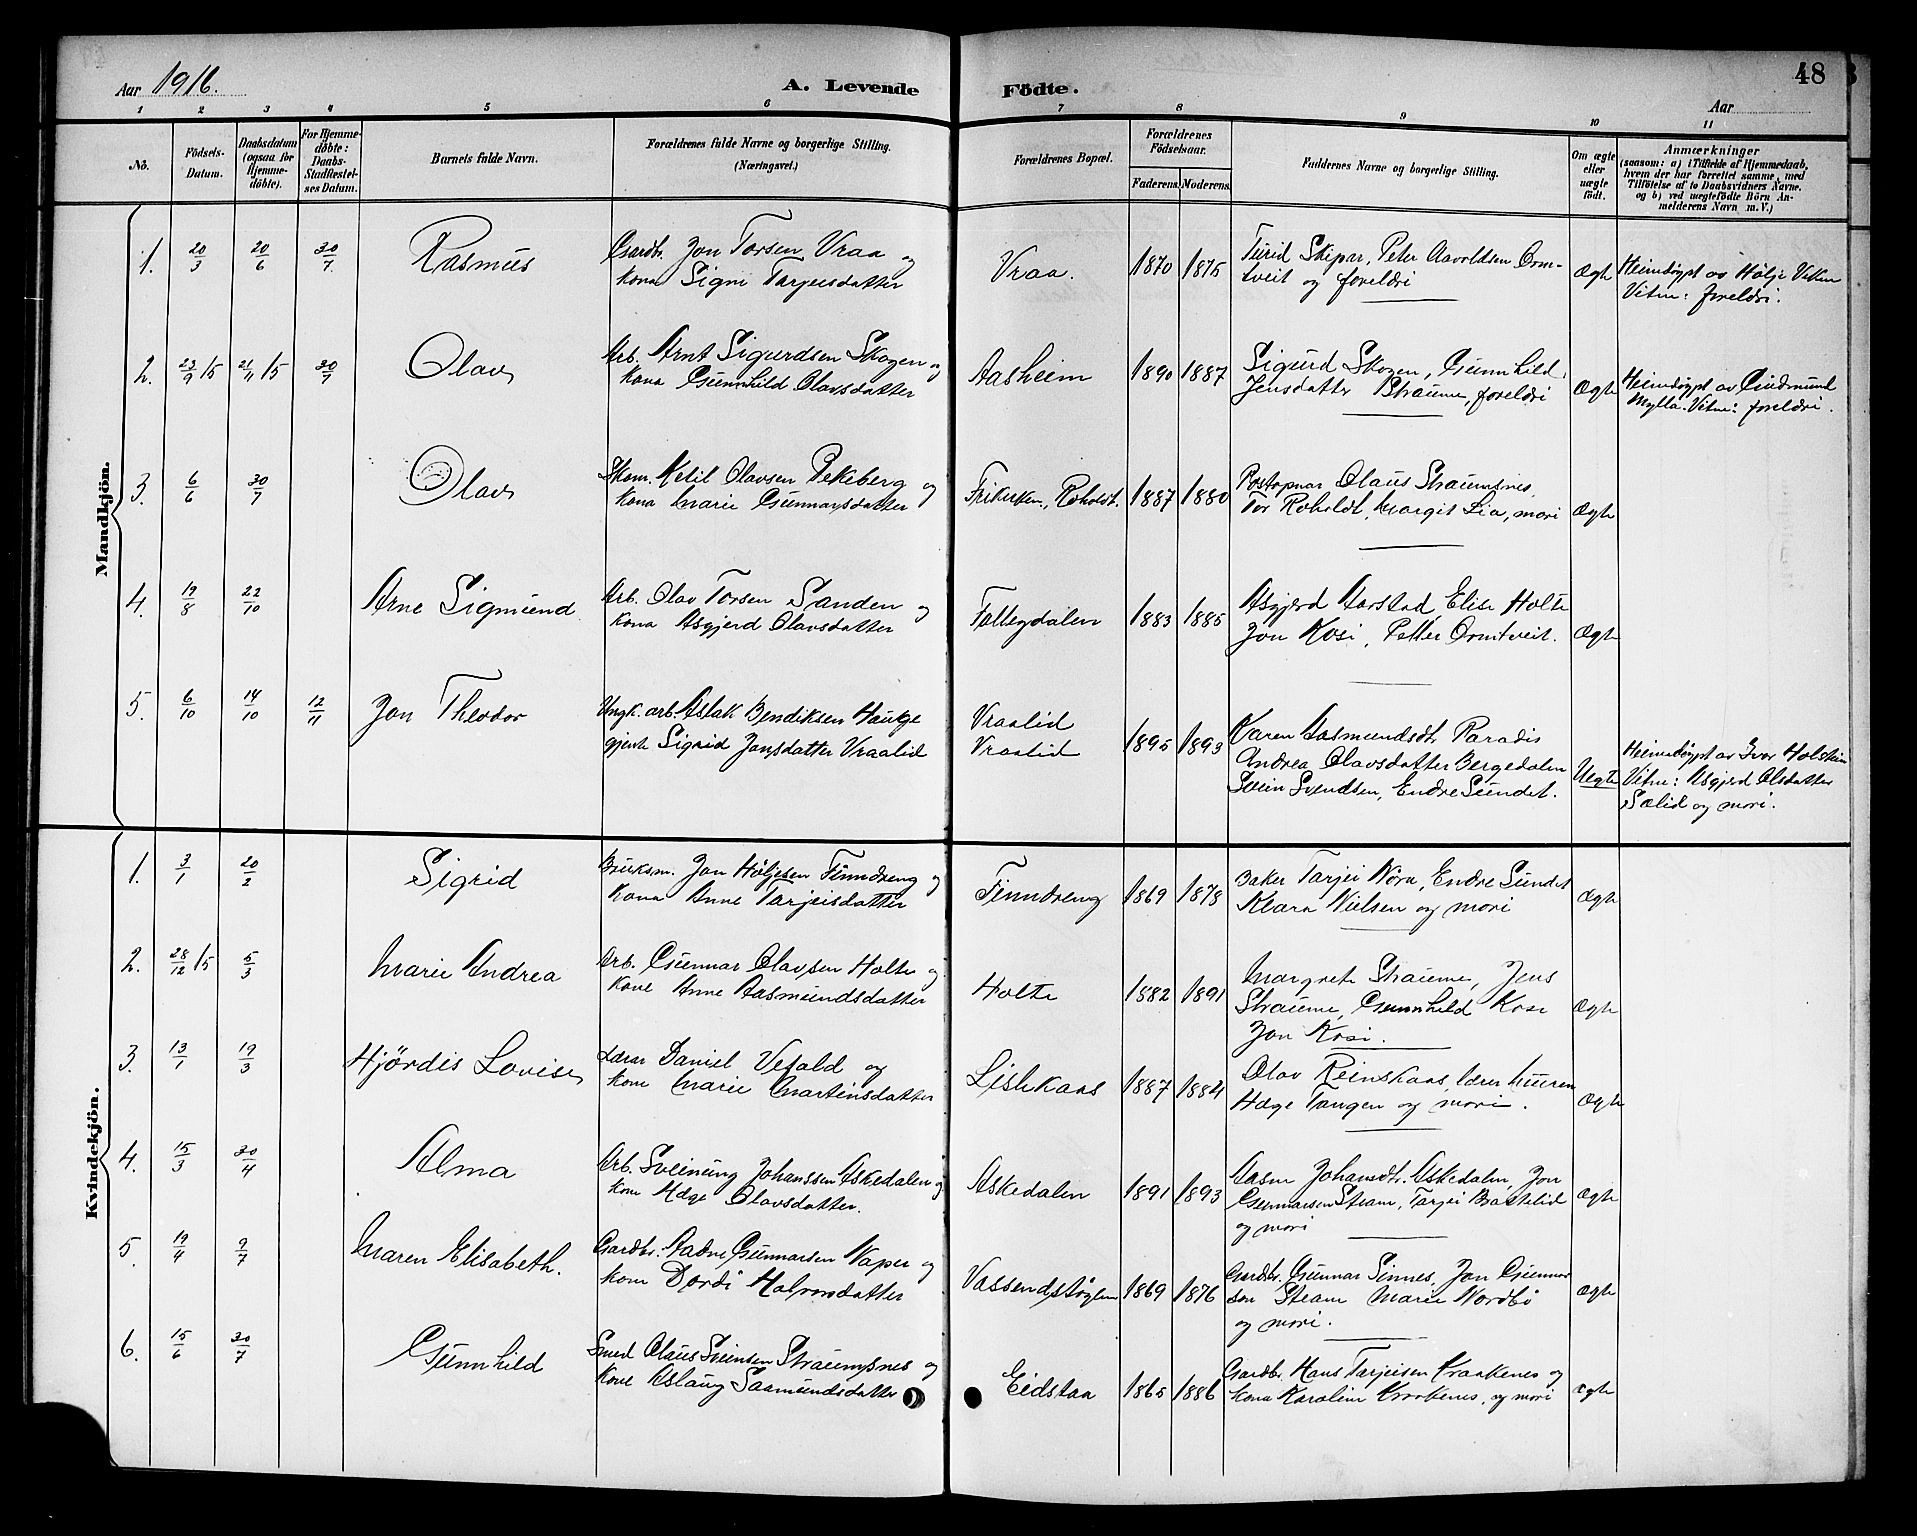 Aar 1916.
A. Levende Födte.
48
Aar
1 2 3 4 5 6 7 8 9 10 11
No.
Födsels-Datum.
Daabsdatum (ogsaa for Hjemme-döbte).
For Hjemme-döbte: Daabs-Stadfæstel-ses Datum.
Barnets fulde Navn.
Forældrenes fulde Navne og borgerlige Stilling. (Næringsvei.)
Forældrenes Bopæl.
Forældrenes Födselsaar.
Faderens. Moderens.
Faddernes Navne og borgerlige Stilling.
Om ægte eller uægte födt.
Anmærkninger
(saasom: a) i Tilfælde af Hjemmedaab,
hvem der har forrettet samme, med
Tilföielse af to Daabsvidners Navne,
og b) ved uægtefödte Börn An-
melderens Navn m. V.)
Mandkjön.
1. 20/3 20/6 30/7 Rasmus
Gardbr. Jon Torsen Vraa og
kona Signe Tarjeisdatter
Vraa. 1870 1875
Turid Skipar, Peter Aavoldsen Orm-
tveit og foreldri
Ægte
Heimdöypt av Hölje
Vitne: foreldri.
2. 23/9 15 21/11 15 30/7 Olav
Arb. Arnt Sigurdsen Skogen og
kona Gunnhild Olavsdatter
Aasheim 1890 1887
Sigurd Skogen, Gunnhild
Jensdatter Straume, foreldri
Ægte
Heimdöypt av Gudmund
Mylla. Vitne: foreldri.
3. 6/6 30/7 Olav
Skom. Ketil Olavsen Pekeberg og
kona Marie Gunnarsdatter
Roholdt. 1887 1880
Postopnar Olaus Straumsnes,
Tor Roholdt, Margit Lia, mori
Ægte
4. 19/8 22/10 Arne Sigmund
Arb. Olav Torsen Sanden og
kona Asgjerd Olavsdatter
Fallegdalen 1883 1885
Asgjerd Aarstad Elise Holte
Jon Kosi, Petter Ormtveit.
Ægte
5. 6/10 14/10 12/11 Jon Theodor
Ungk. arb. Aslak Bendiksen Hauge
gjente Sigrid Jonsdatter Vraalid
Vraalid
Vraalid
1895 1893
Karen Aasmundsdtr Paradis
Andrea Olavsdatter Bergedalen
Svein Svendsen, Endre Sundet.
Uegte
Heimdöypt av Ivar Holstein
Vitne: Asgjerd Olsdatter
Sælid og mori.
Kvindekjön.
1. 3/1 20/2 Sigrid
Bruksm. Jon Höljesen Finndreng og
kona Anne Tarjeisdatter
Finndreng 1869 1878
Baker Tarjei Nörn, Endre Sundet
Klara Nielsen og mori
Ægte
2. 28/12 15 5/3 Marie Andrea
Arb. Gunnar Olavsen Holte og
kone Anne Aasmundsdatter
Holte 1882 1891
Margrete Straume, Jens
Straume, Gunnhild Kosi
Jon Kosi.
Ægte
3. 13/1 19/3 Hjördis Lovise
Lærar Daniel Vefald og
kone Marie Martinsdatter
Lislekaas 1887 1884
Olav Reinskaas, lærer
Hæge Tangen og mori.
Ægte
4. 15/3 30/4 Alma
Arb. Sveinung Johanssen Askedalen og
kone Hæge Olavsdatter.
Askedalen 1891 1893
Aasne Johansdtr. Askedalen, Jon
Gunnarsen Steane, Tarjei Bakkelid
og mori
Ægte
5. 19/4 9/7 Maren Elisabeth.
Gardbr. Aadne Gunnarsen Naper og
kone Dordi Halvorsdatter
Vassendstöylen 1869 1876
Gardbr. Gunnar Sinnes, Jon Gunnar
sen Steane Marie Nordbö
og mori.
Ægte
6. 15/6 30/7 Gunnhild
Smed Olaus Sveinsen Straumsnes og
kone Aslaug Saamundsdatter
Eidstaa 1865 1886
Gardbr. Hans Tarjeisen Kraakenes og
kona Karoline Kraakenes, og mori
ægte